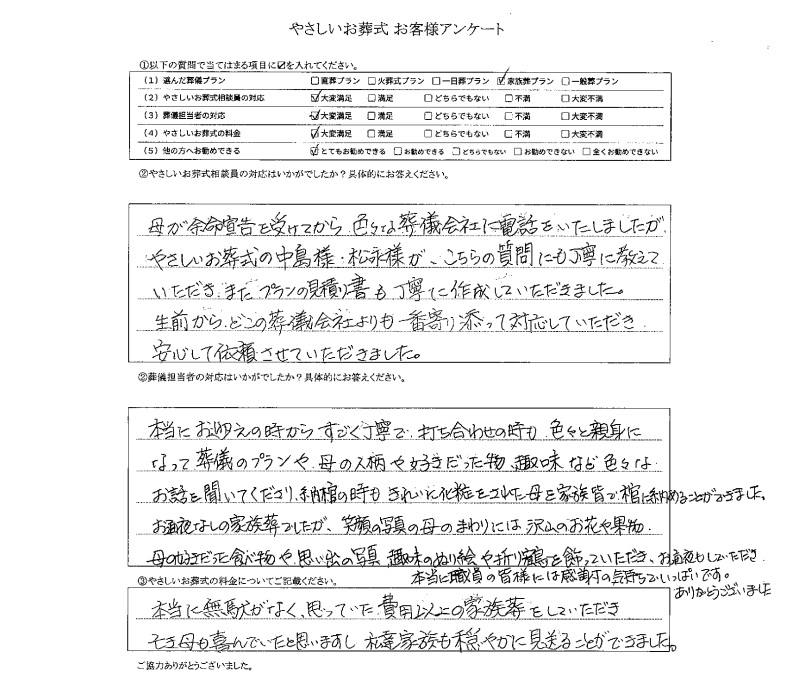 やさしいお葬式 お客様アンケート
①以下の質問で当てはまる項目に☑を入れてください。
(1) 選んだ葬儀プラン □直葬プラン □火葬式プラン □一日葬プラン ☑家族葬プラン □一般葬プラン
(2) やさしいお葬式相談員の対応 ☑大変満足 □満足 □どちらでもない □不満 □大変不満
(3) 葬儀担当者の対応 ☑大変満足 □満足 □どちらでもない □不満 □大変不満
(4) やさしいお葬式の料金 ☑大変満足 □満足 □どちらでもない □不満 □大変不満
(5) 他の方へお勧めできる ☑とてもお勧めできる □お勧めできる □どちらでもない □お勧めできない □全くお勧めできない
②やさしいお葬式相談員の対応はいかがでしたか？具体的にお答えください。
母が余命宣告を受けてから、色々な葬儀会社に電話をいたしましたが、
やさしいお葬式の中島様・松永様が、こちらの質問にも丁寧に教えて
いただき、また プランの見積り書も丁寧に作成していただきました。
生前から、どこの葬儀会社よりも一番寄り添って対応していただき、
安心して依頼させていただきました。
②葬儀担当者の対応はいかがでしたか？具体的にお答えください。
本当にお迎えの時から すごく丁寧で、打ち合わせの時も 色々と親身に
なって 葬儀のプランや、母の人柄や好きだった物、趣味など 色々な
お話を聞いてくださり、納棺の時も きれいに化粧をされた母を家族皆で棺に納めることができました。
お通夜なしの家族葬でしたが、笑顔の写真の母のまわりには 沢山のお花や果物、
母の好きだった食べ物や 思い出の写真、趣味のぬり絵や折り鶴を飾っていただき、お通夜もしていただき、
本当に職員の皆様には感謝の気持ちでいっぱいです。
ありがとうございました
③やさしいお葬式の料金についてご記載ください。
本当に無駄がなく、思っていた費用以上の家族葬をしていただき
母も喜んでいたと思いますし 家族も穏やかに見送ることができました。
ご協力ありがとうございました。